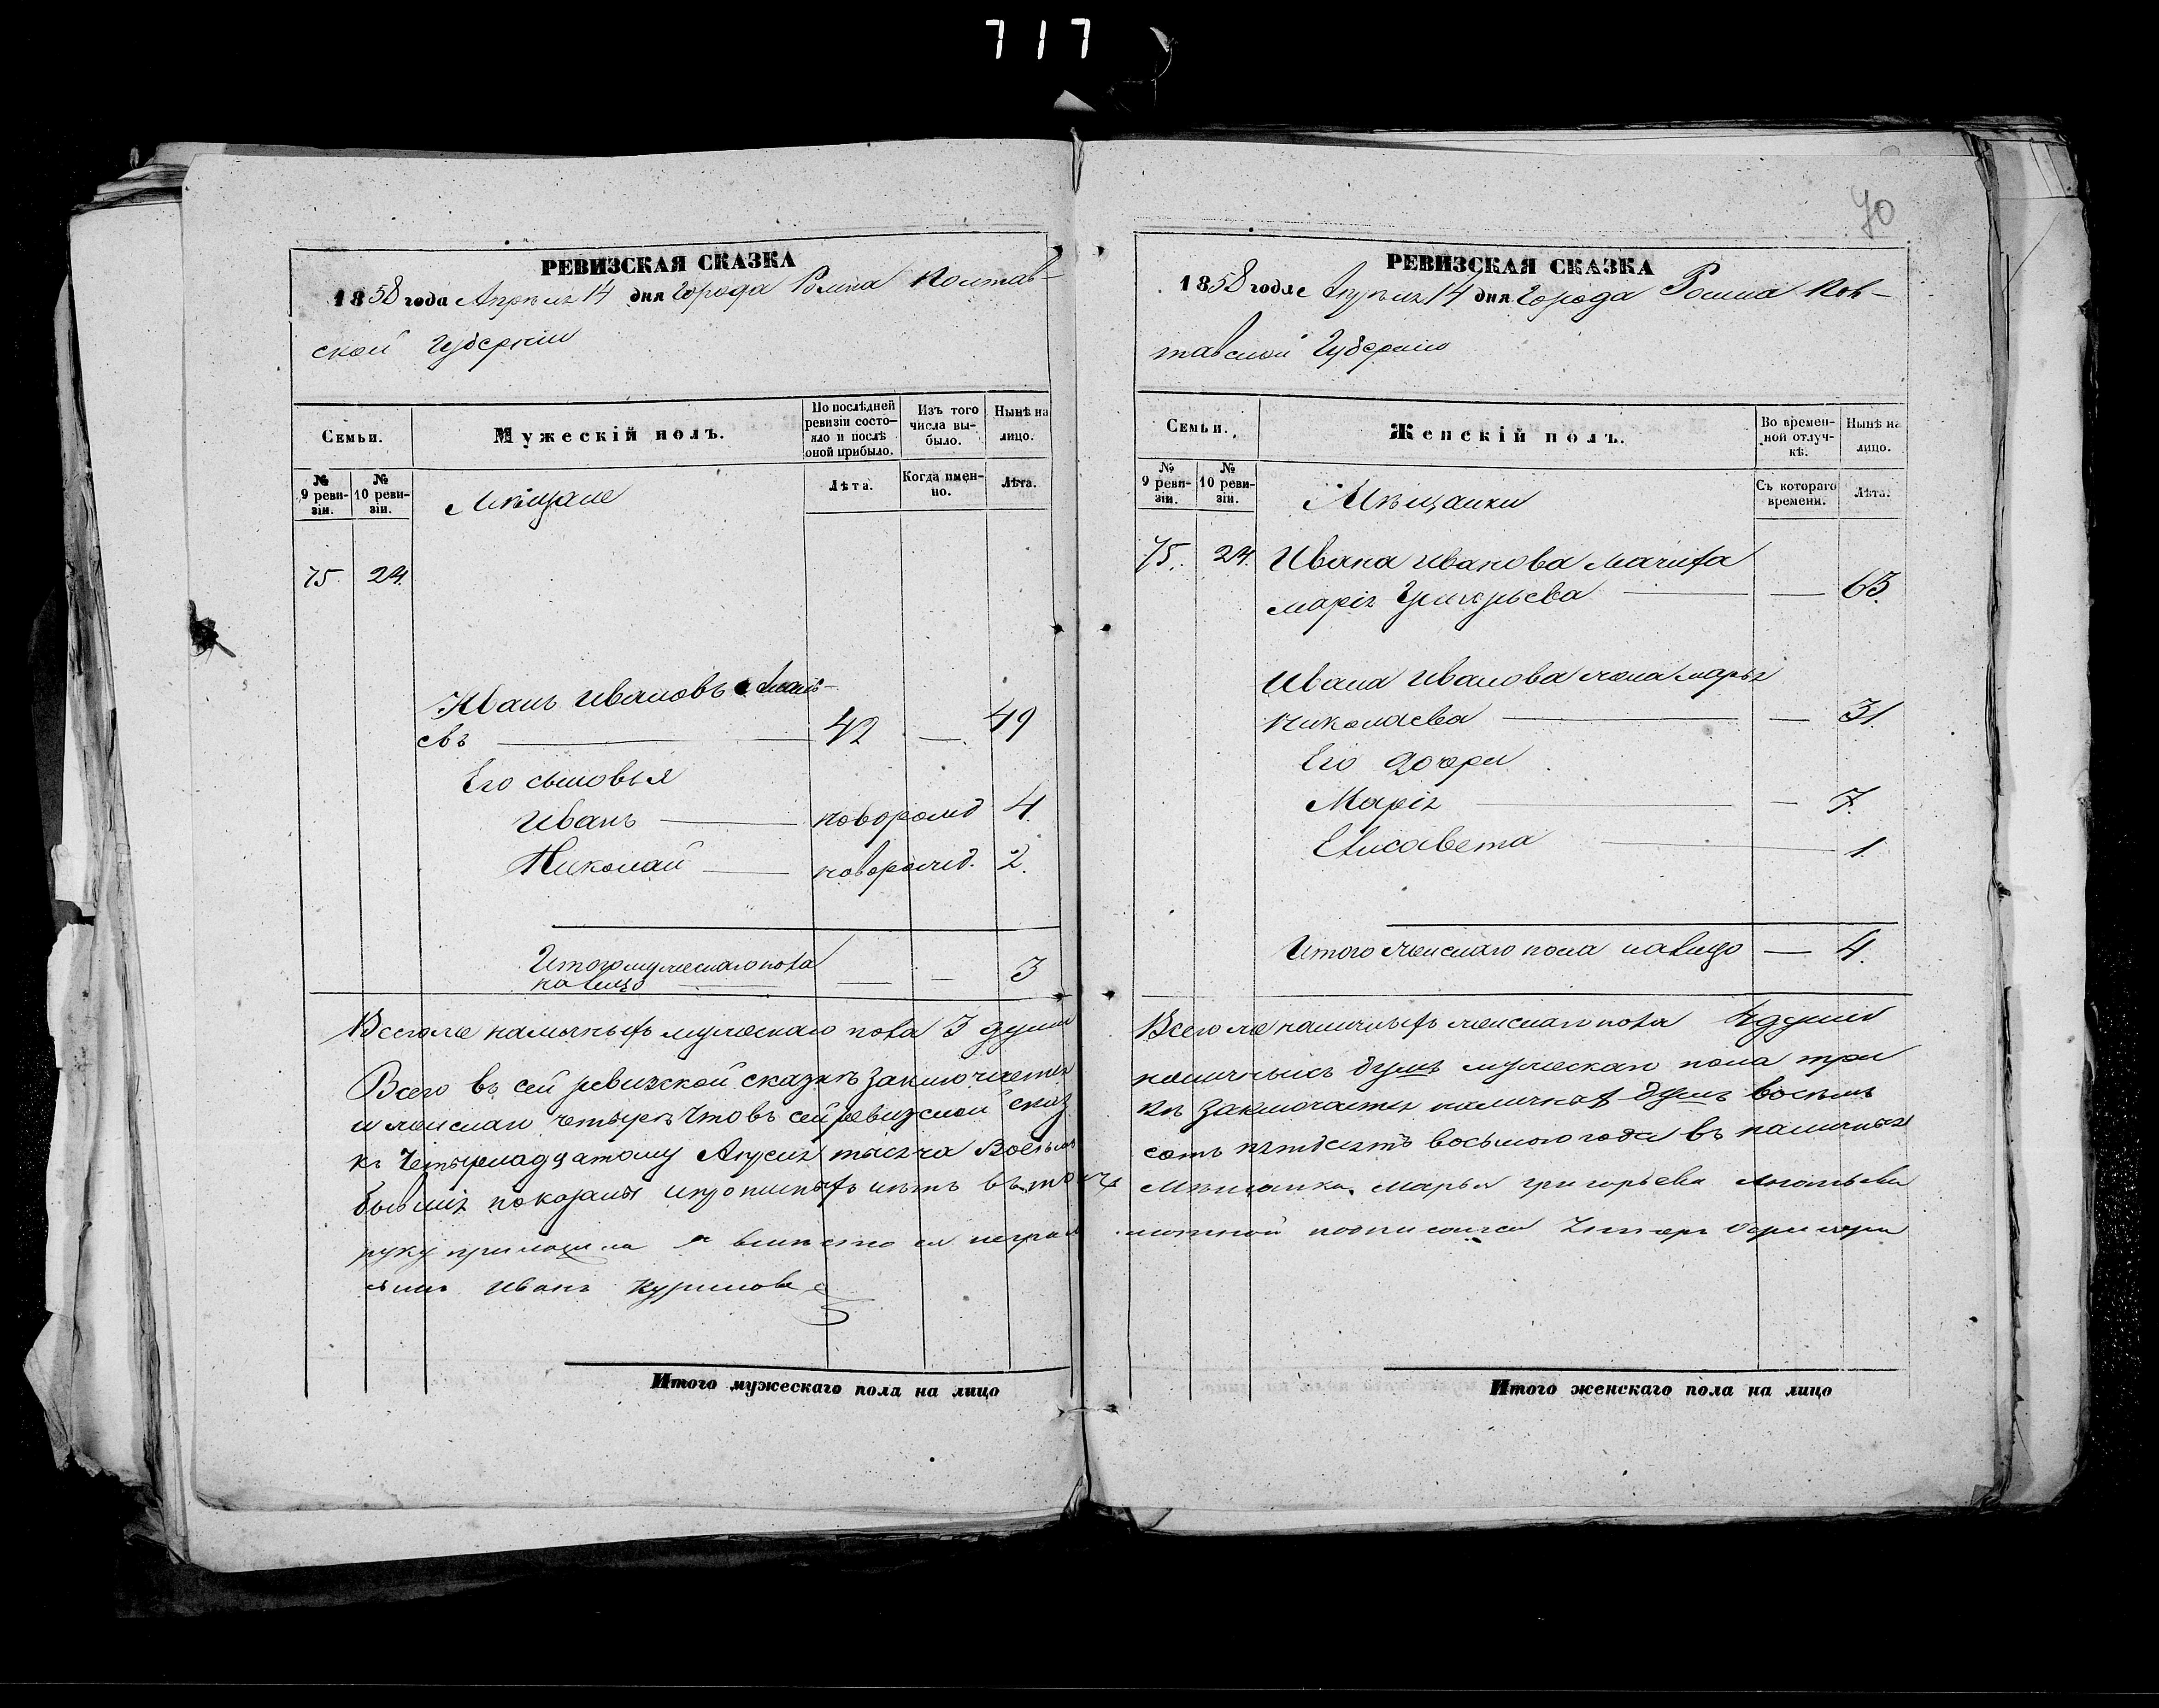 717
РЕВИЗСКАЯ СКАЗКА
1858 года Апреля 14 дня Города Ромна Полтав-
ской Губерніи
Семьи.
Мужескій полъ.
По послѣдней ревизіи состояло и послѣ оной прибыло.
Изъ того числа выбыло.
Нынѣ на лицо.
№ 9 ревизіи.
№ 10 ревизіи.
Мѣщане
Лѣта.
Когда именно.
Лѣта.
75. 24.
Иванъ Ивановъ
евъ — 42 — 49
Его сыновья
Иванъ — новорожд 4.
Николай — новорожд. 2.
Итого мужескаго пола
на лицо — — 3
Всего же наличныхъ мужескаго пола 3 души
Всего въ сей ревизской сказкѣ заключается
и женскаго четыре Что въ сей ревизской сказ
къ Четырнадцатому Апреля тысяча Восемь
бывшіе показаны и прописныхъ нѣтъ въ томъ
руку приложила а вместо ея неграм
Иванъ Куриловъ
Итого мужескаго пола на лицо
70
РЕВИЗСКАЯ СКАЗКА
1858 года Апреля 14 дня Города Ромна Пол-
тавской Губерніи
Семьи.
Женскій полъ.
Во временной отлучкѣ.
Нынѣ на лицо.
№ 9 ревизіи.
№ 10 ревизіи.
Мѣщанки
Съ котораго времени.
Лѣта.
75. 24. Ивана Иванова Мачиха
Марія Григорьева — — 63.
Ивана Иванова жена Марья
Николаева — — 31.
Его дочери
Марія — — 7.
Елисавета — 1.
Итого женскаго пола на лицо — 4.
Всего же наличныхъ женскаго пола 4 души
наличныхъ душъ мужескаго пола три
кѣ заключается наличная душъ восемь
сотъ пятдесятъ восьмого года въ наличныхъ
Мѣщанка Марья Григорьева
мотной подписался
Итого женскаго пола на лицо